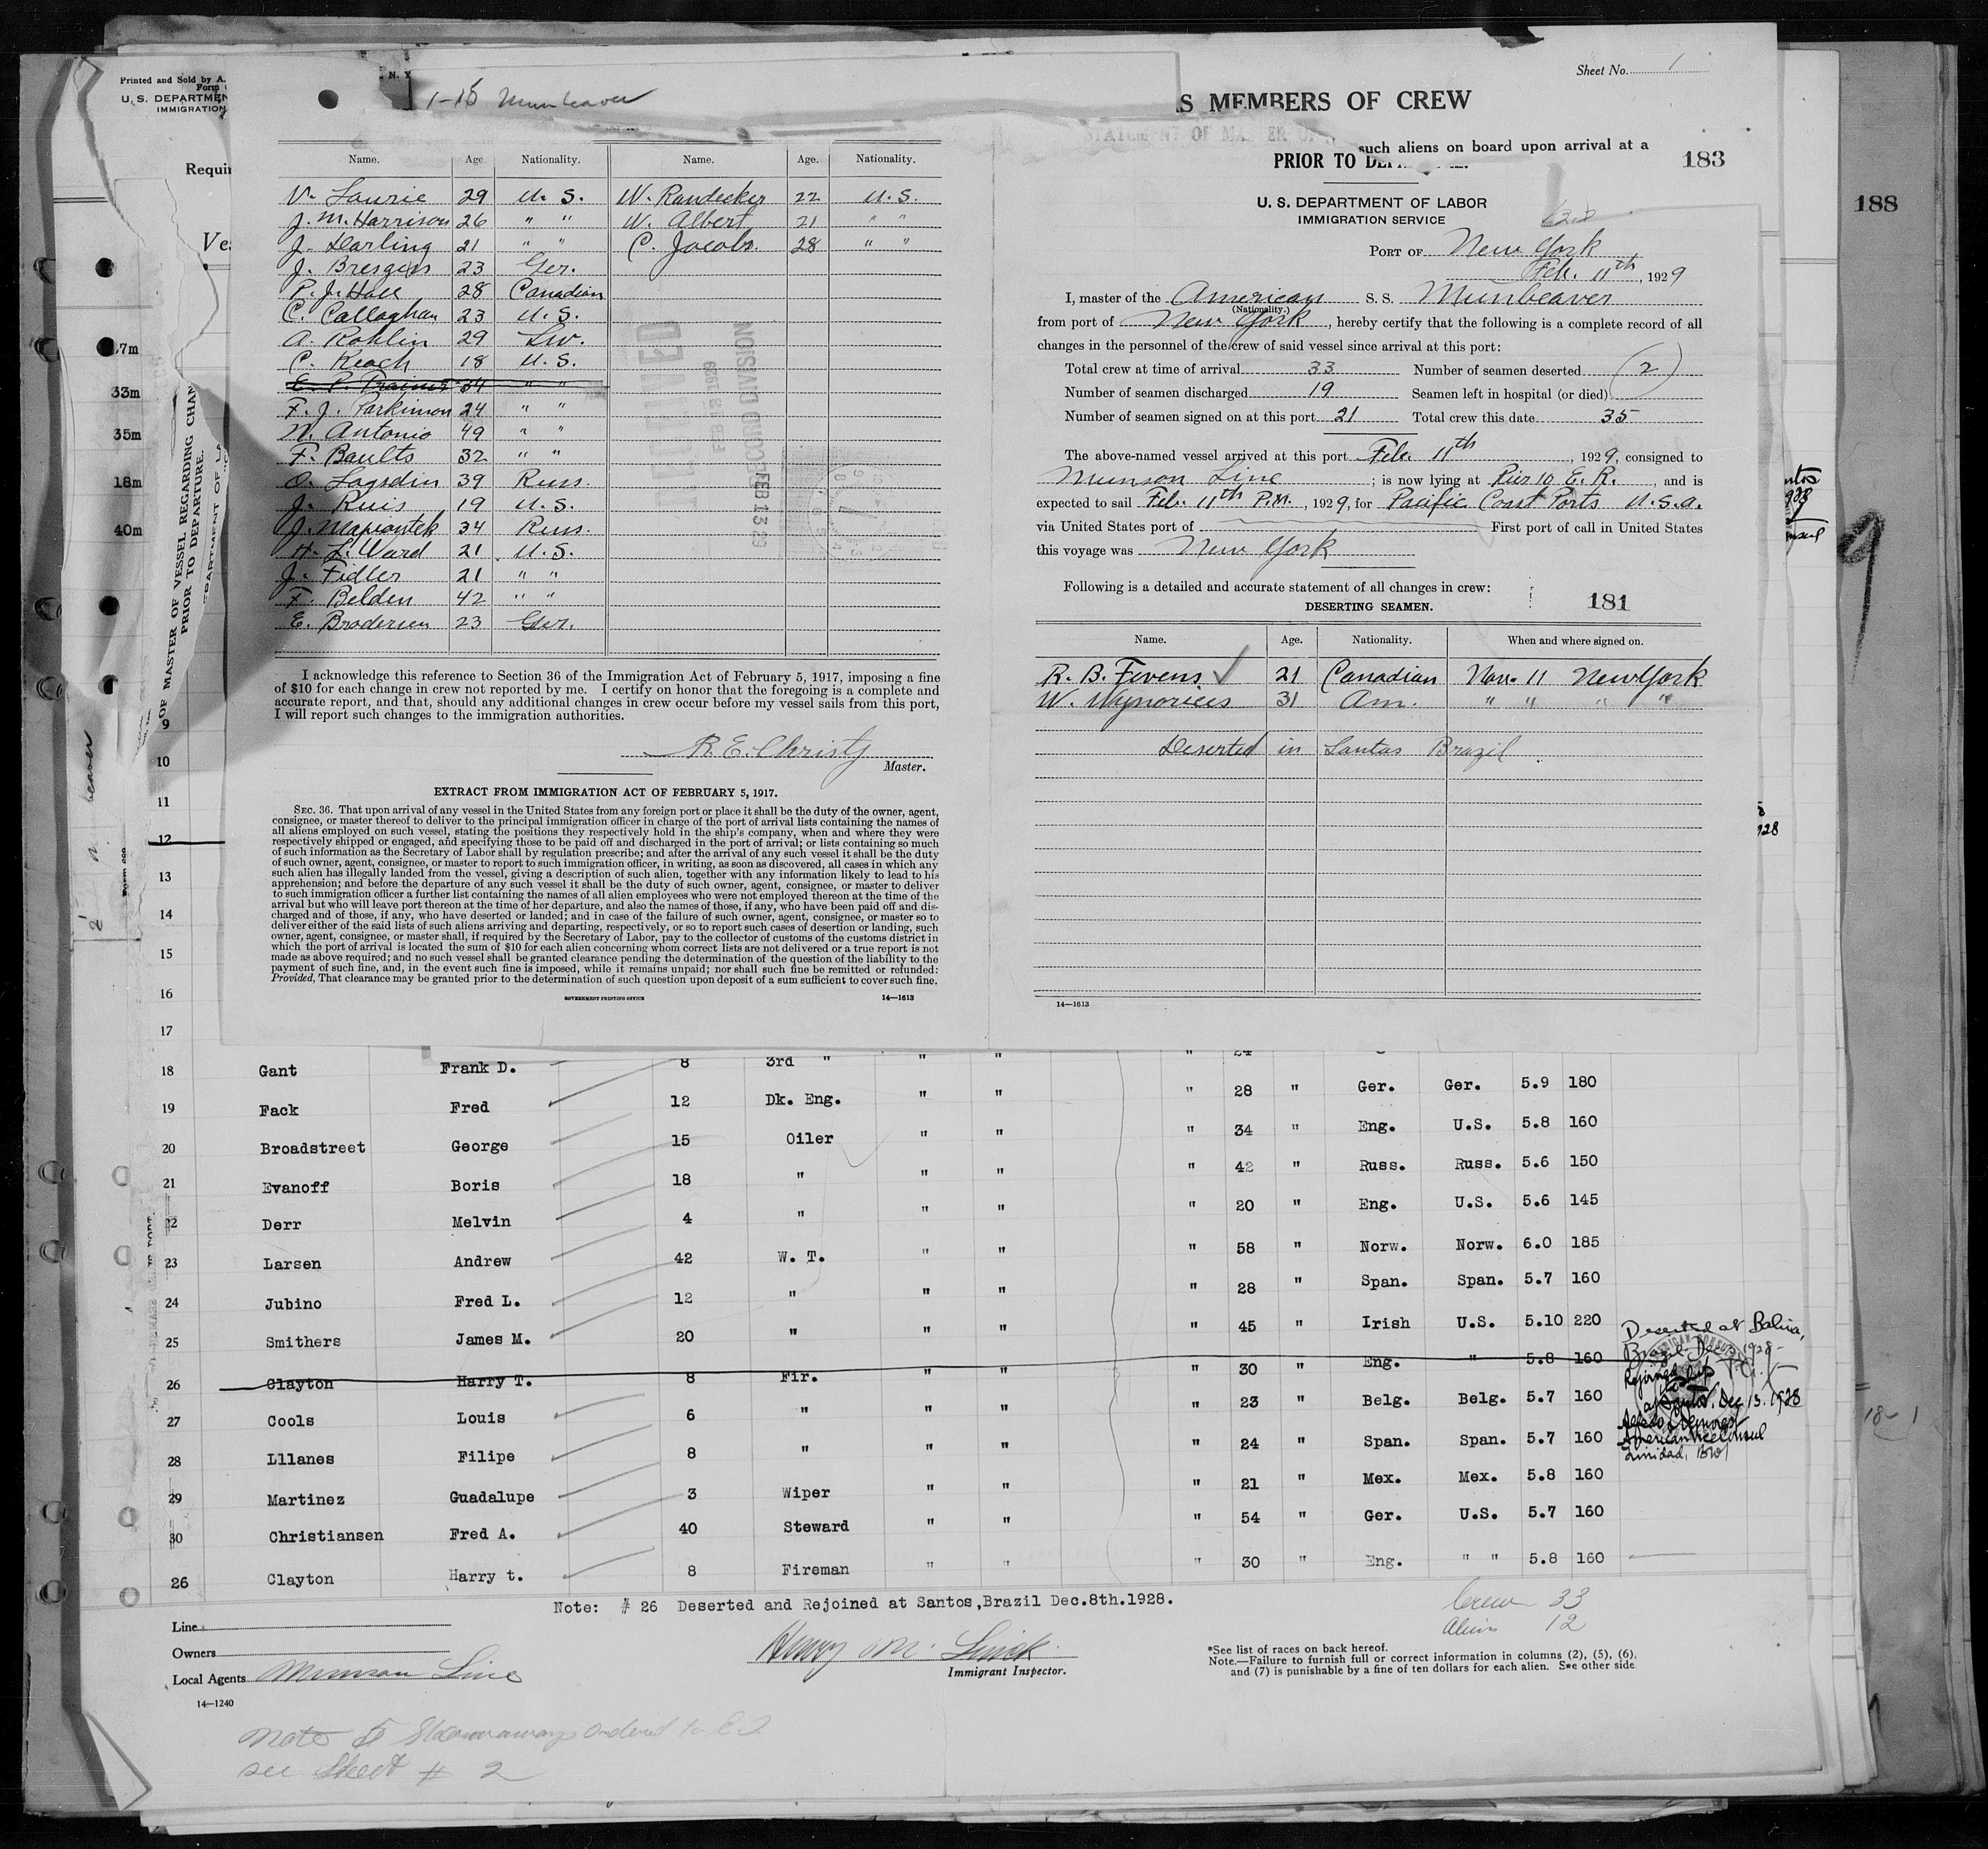 Printed and Sold by A.
Form
U. S. DEPARTMEN
IMMIGRATION
N. Y
1-15 Munbeaver
Sheet No. 1
S MEMBERS OF CREW
such aliens on board upon arrival at a
183
188
Requir
Ves
37m
33m
35m
18m
40m
OF MASTER OF VESSEL REGARDING CHAN
PRIOR TO DEPARTURE.
EPARTMENT OF LA
Name. Age. Nationality. Name. Age. Nationality.
V. Laurie 29 U. S. W. Randecker 22 U. S.
J. M. Harrison 26 " " W. Albert 21 " "
J. Darling 21 " " C. Jacobs. 28 " "
J. Bresgens 23 Ger.
P. J. Hall 28 Canadian
C. Callaghan 23 U. S.
A. Rohlin 29 Sw.
C. Keach 18 U. S.
E. P. Trainor 34 " "
F. J. Parkinson 24 " "
N. Antonio 49 " "
F. Baults 32 " "
O. Lagsdin 39 Russ.
J. Ruis 19 U. S.
J. Mapiontek 34 Russ.
H. L. Ward 21 U. S.
J. Fidler 21 " "
F. Belden 42 " "
E. Brodersen 23 Ger.
FEB 13 1929
RECORD DIVISION
FEB 13 29
I acknowledge this reference to Section 36 of the Immigration Act of February 5, 1917, imposing a fine
of $10 for each change in crew not reported by me. I certify on honor that the foregoing is a complete and
accurate report, and that, should any additional changes in crew occur before my vessel sails from this port,
I will report such changes to the immigration authorities.
R. E. Christy
Master.
EXTRACT FROM IMMIGRATION ACT OF FEBRUARY 5, 1917.
SEC. 36. That upon arrival of any vessel in the United States from any foreign port or place it shall be the duty of the owner, agent,
consignee, or master thereof to deliver to the principal immigration officer in charge of the port of arrival lists containing the names of
all aliens employed on such vessel, stating the positions they respectively hold in the ship's company, when and where they were
respectively shipped or engaged, and specifying those to be paid off and discharged in the port of arrival; or lists containing so much
of such information as the Secretary of Labor shall by regulation prescribe; and after the arrival of any such vessel it shall be the duty
of such owner, agent, consignee, or master to report to such immigration officer, in writing, as soon as discovered, all cases in which any
such alien has illegally landed from the vessel, giving a description of such alien, together with any information likely to lead to his
apprehension; and before the departure of any such vessel it shall be the duty of such owner, agent, consignee, or master to deliver
to such immigration officer a further list containing the names of all alien employees who were not employed thereon at the time of the
arrival but who will leave port thereon at the time of her departure, and also the names of those, if any, who have been paid off and dis-
charged and of those, if any, who have deserted or landed; and in case of the failure of such owner, agent, consignee, or master so to
deliver either of the said lists of such aliens arriving and departing, respectively, or so to report such cases of desertion or landing, such
owner, agent, consignee, or master shall, if required by the Secretary of Labor, pay to the collector of customs of the customs district in
which the port of arrival is located the sum of $10 for each alien concerning whom correct lists are not delivered or a true report is not
made as above required; and no such vessel shall be granted clearance pending the determination of the question of the liability to the
payment of such fine, and, in the event such fine is imposed, while it remains unpaid; nor shall such fine be remitted or refunded:
Provided, That clearance may be granted prior to the determination of such question upon deposit of a sum sufficient to cover such fine.
GOVERNMENT PRINTING OFFICE 14—1613
STATEMENT OF MASTER OF
PRIOR TO DE
U. S. DEPARTMENT OF LABOR
IMMIGRATION SERVICE
PORT OF New York
Feb. 11th, 1929
I, master of the American S. S. Munbeaver
(Nationality.)
from port of New York, hereby certify that the following is a complete record of all
changes in the personnel of the crew of said vessel since arrival at this port:
Total crew at time of arrival 33 Number of seamen deserted (2)
Number of seamen discharged 19 Seamen left in hospital (or died)
Number of seamen signed on at this port 21 Total crew this date 35
The above-named vessel arrived at this port Feb. 11th, 1929, consigned to
Munson Line; is now lying at Pier 10 E. R., and is
expected to sail Feb. 11th P.M., 1929, for Pacific Coast Ports U.S.A.
via United States port of First port of call in United States
this voyage was New York
Following is a detailed and accurate statement of all changes in crew:
DESERTING SEAMEN. 181
Name. Age. Nationality. When and where signed on.
R. B. Fevens 21 Canadian Nov. 11 New York
W. Waynoricis 31 Am. " " " "
Deserted in Santas Brazil
14—1613
beaver
9
10
11
12
13
14
15
16
17
18 Gant Frank D. 8 3rd " " " " 24
19 Fack Fred 12 Dk. Eng. " " " 28 " Ger. Ger. 5.9 180
20 Broadstreet George 15 Oiler " " " 34 " Eng. U.S. 5.8 160
21 Evanoff Boris 18 " " " " 42 " Russ. Russ. 5.6 150
22 Derr Melvin 4 " " " " 20 " Eng. U.S. 5.6 145
23 Larsen Andrew 42 W. T. " " " 58 " Norw. Norw. 6.0 185
24 Jubino Fred L. 12 " " " " 28 " Span. Span. 5.7 160
25 Smithers James M. 20 " " " " 45 " Irish U.S. 5.10 220
26 Clayton Harry T. 8 Fir. " " " 30 " Eng. " 5.8 160
27 Cools Louis 6 " " " " 23 " Belg. Belg. 5.7 160
28 Lllanes Filipe 8 " " " " 24 " Span. Span. 5.7 160
29 Martinez Guadalupe 3 Wiper " " " 21 " Mex. Mex. 5.8 160
30 Christiansen Fred A. 40 Steward " " " 54 " Ger. U.S. 5.7 160
26 Clayton Harry t. 8 Fireman " " " 30 " Eng. " " 5.8 160
Deserted at Bahia,
Brazil Dec 1928
Rejoined ship
at Santos, Dec 13. 1928
American Vice Consul
Trinidad, BWI
18- 1
Note: # 26 Deserted and Rejoined at Santos,Brazil Dec.8th.1928.
Crew 33
Aliens 12
Line
Owners
Local Agents Munson Line
14—1240
Immigrant Inspector.
*See list of races on back hereof.
Note.—Failure to furnish full or correct information in columns (2), (5), (6),
and (7) is punishable by a fine of ten dollars for each alien. See other side
Note 5 Stowaways ordered
see Sheet # 2